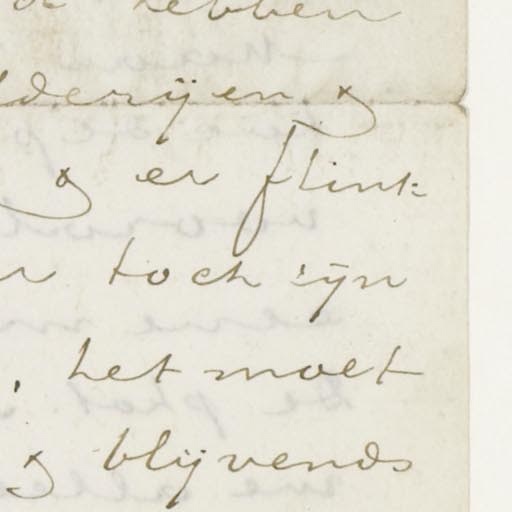 hebben
lderijen &
& er flink
toch zijn
, het moet
& blijvends